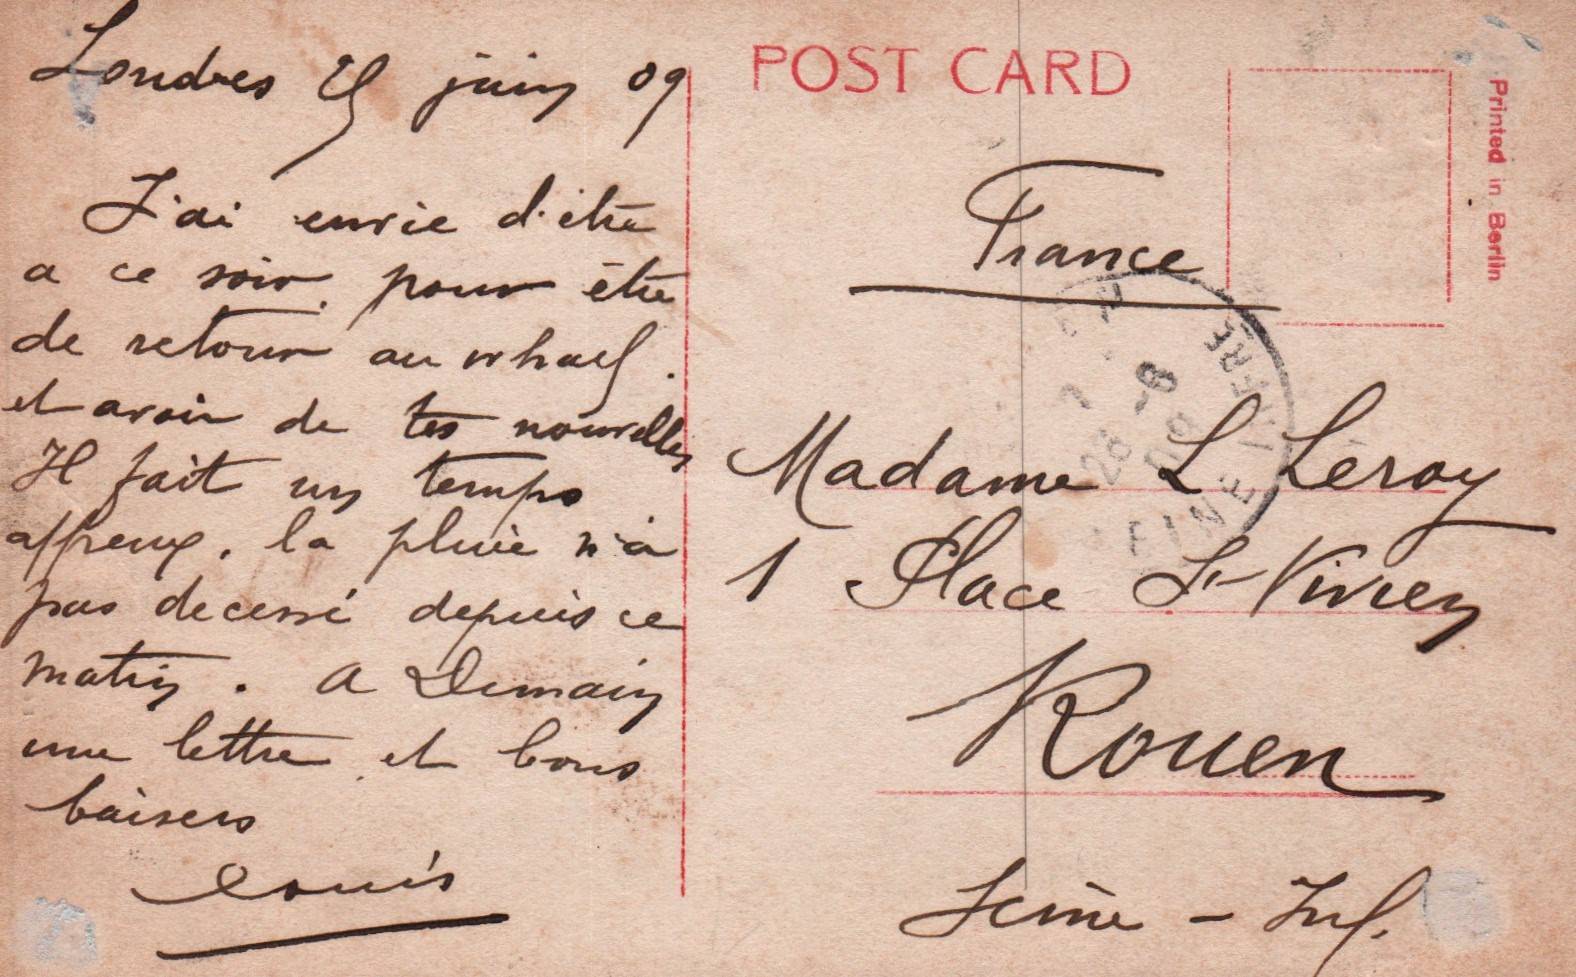 Londres 25 juin 09
J'ai envie d'être
a ce soir pour être
de retour au wharf.
et avoir de tes nouvelles
Il fait un temps
affreux. la pluie n'a
pas decessé depuis ce
matin. a Demain
une lettre et bons
baisers
Louis
POST CARD
Printed in Berlin
France
Madame L Leroy
1 Place St-Vivien
Rouen
Seine - Inf.
28 -8
09
SEINE INFRE